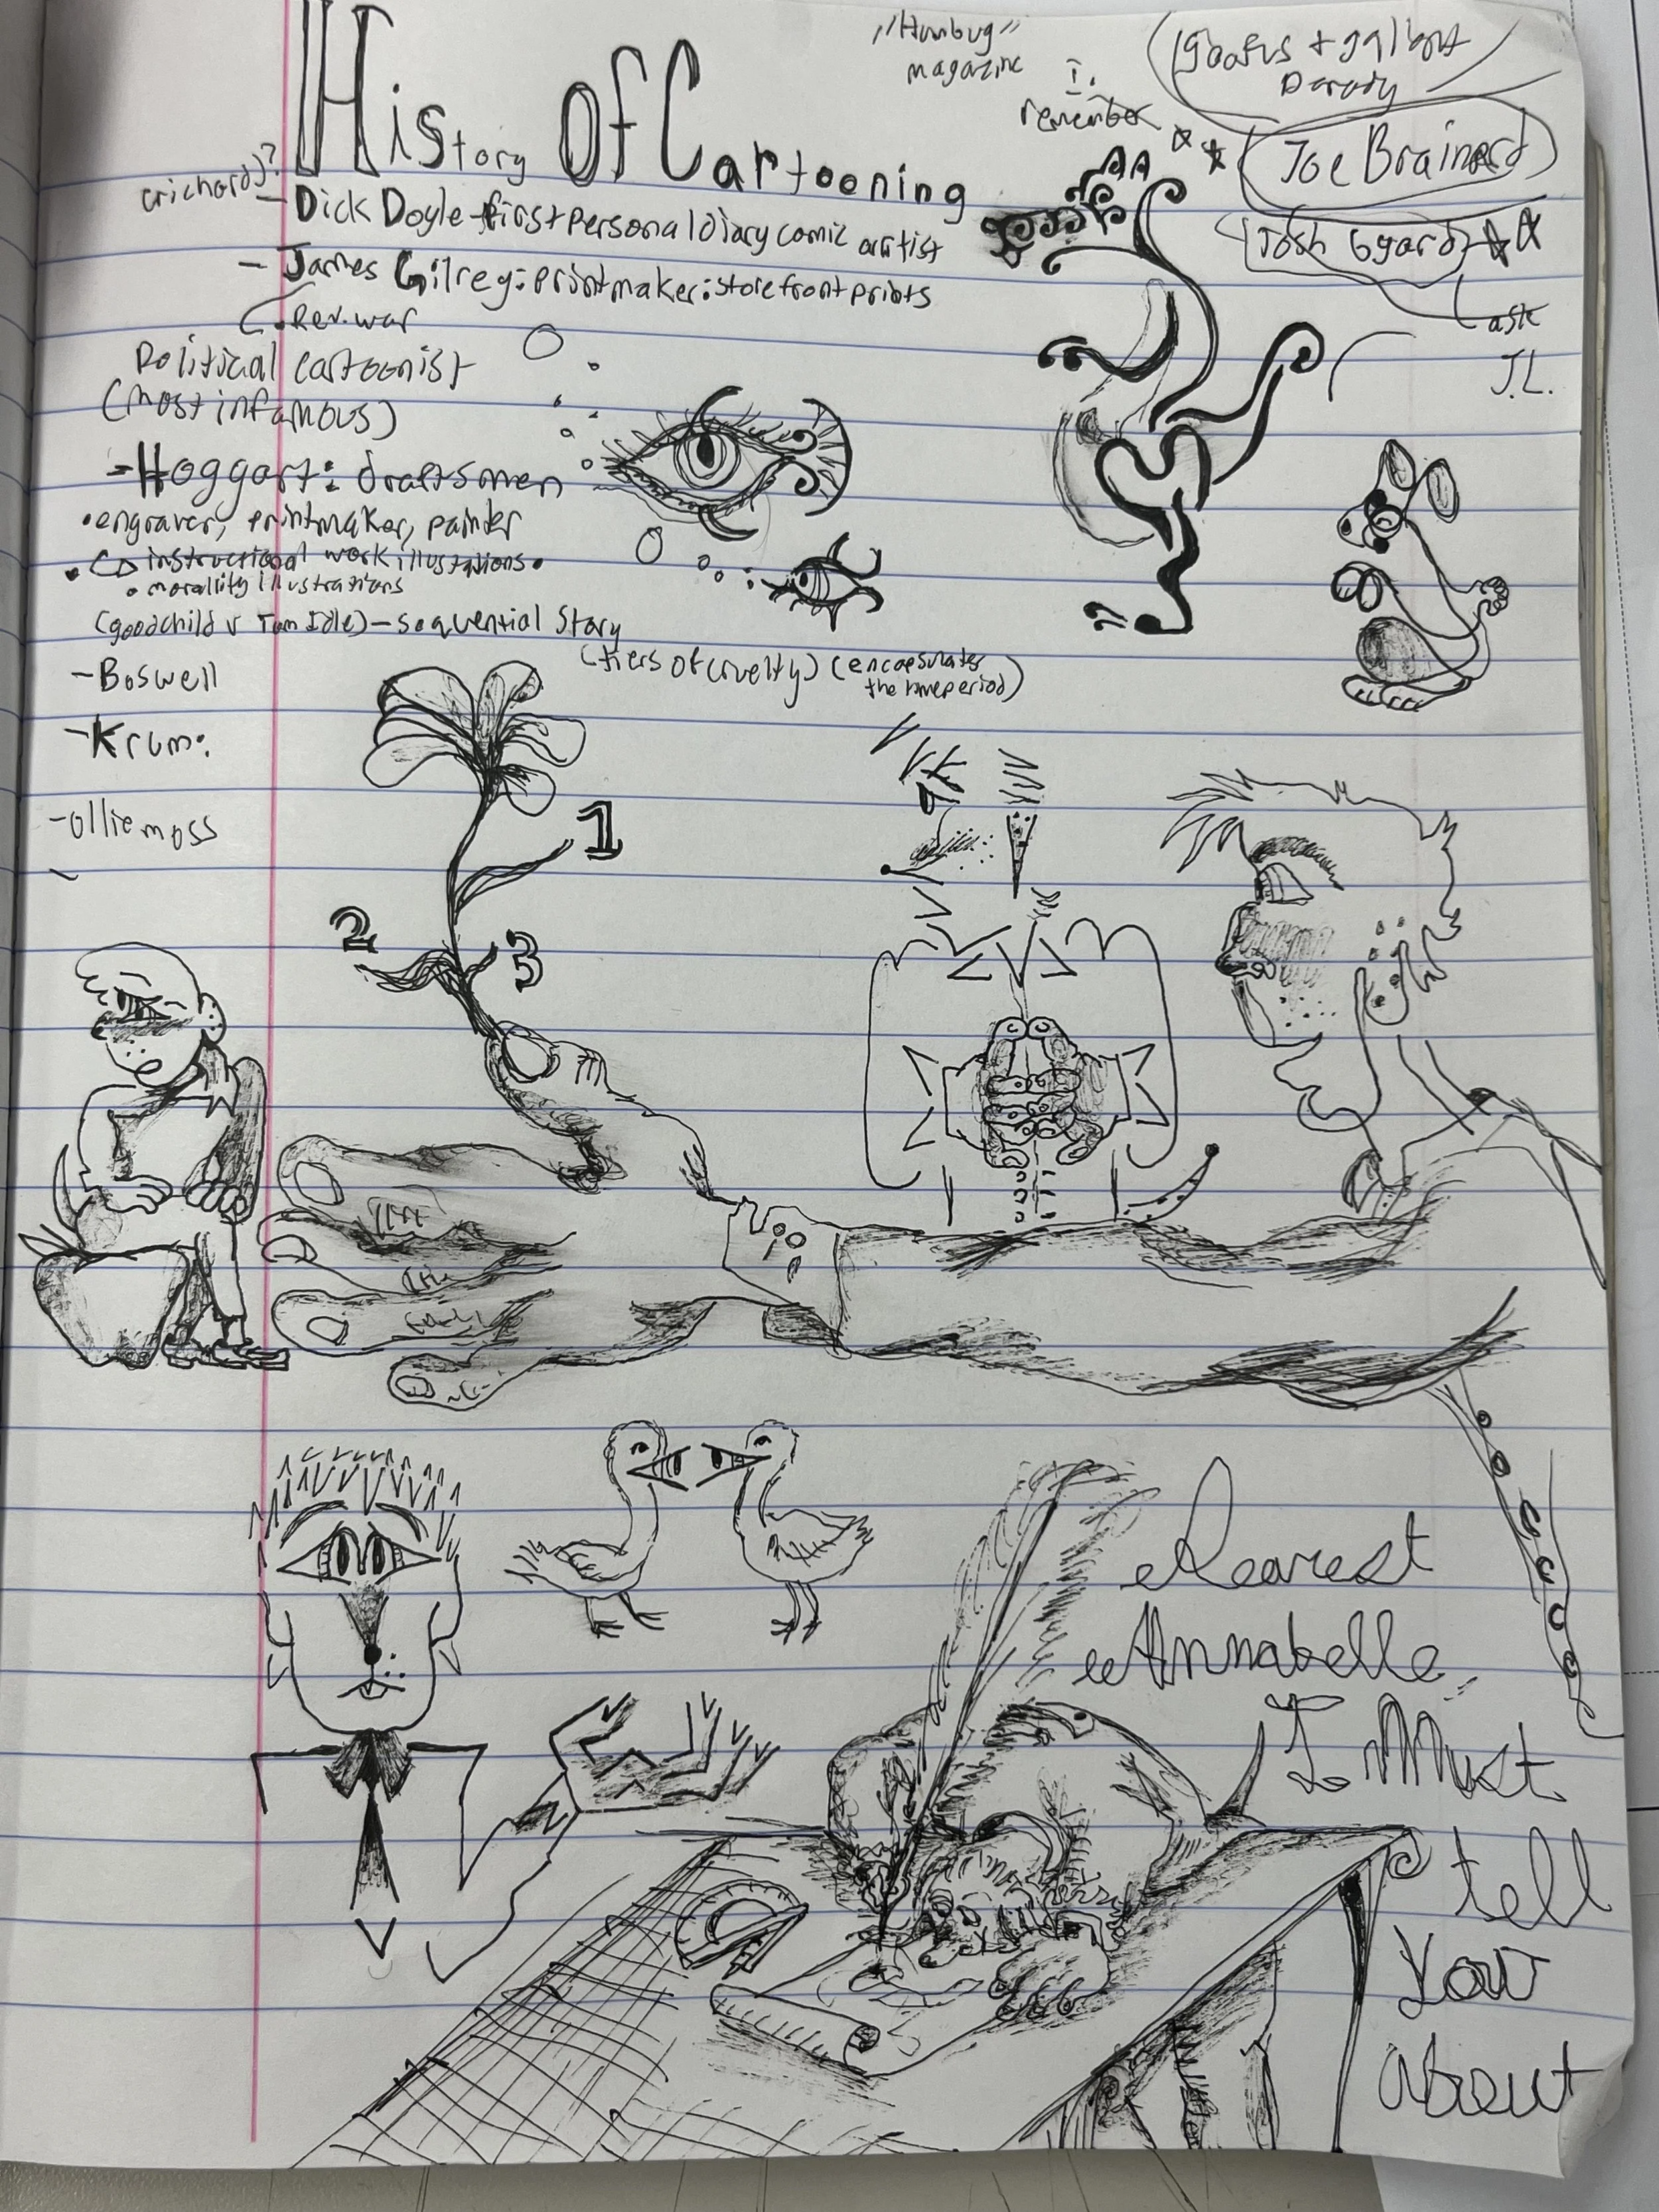 "Humbug"
magazine
remember
Goofus + gallant
Parody
Joe Brainerd
Josh Bayard
ask
J.L.
History Of Cartooning
(richard)?
- Dick Doyle - first personal diary comic artist
- James Gilrey: printmaker: storefront prints
Rev. war
Political cartoonist
(most infamous)
- Hoggart: draftsmen
• engraver, printmaker, painter
• instructional work illustations •
• morality illustrations
(goodchild v Tom Idle) - sequential story
(tiers of cruelty) (encapsulates
the timeperiod)
- Boswell
- Krum:
- olliemoss
1
2
3
Dearest
Annabelle,
I Must
tell
You
About